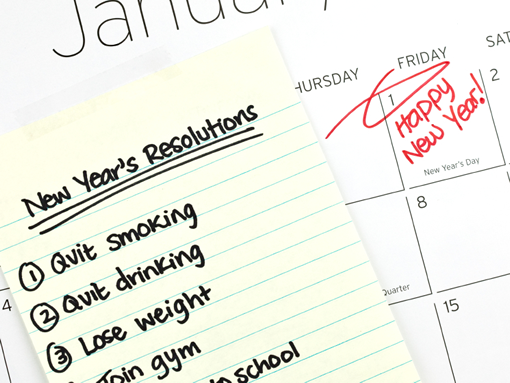 January
THURSDAY
FRIDAY
SAT
1
Happy
New Year!
New Year's Day
2
8
Quarter
15
4
New Year's Resolutions
1 Quit smoking
2 Quit drinking
3 Lose weight
Join gym
school